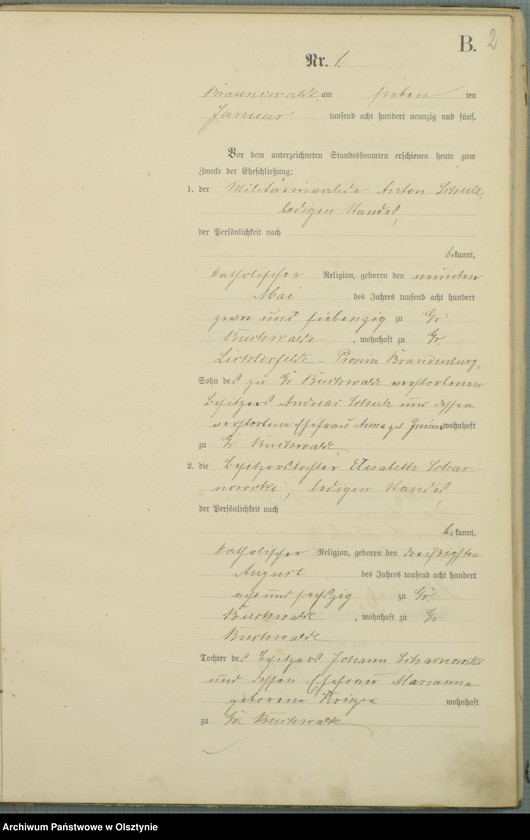 B. 2
Nr. 1.
Braunswalde, am sieben ten
Januar tausend acht hundert neunzig und fünf.
Vor dem unterzeichneten Standesbeamten erschienen heute zum
Zwecke der Eheschließung:
1. der Militärinvalide Anton Schulz,
ledigen Standes,
der Persönlichkeit nach
bekannt,
katholischer Religion, geboren den neunten
Mai des Jahres tausend acht hundert
zwei und siebenzig zu Gr
Buchwalde, wohnhaft zu Gr
Lichterfelde - Provinz Brandenburg,
Sohn des zu Gr Buchwald verstorbenen
Besitzers Andreas Schulz und dessen
verstorbene Ehefrau Anna wohnhaft
zu Gr Buchwald,
2. die Besitzerstochter Elisabeth Schar-
nowski, ledigen Standes,
der Persönlichkeit nach
bekannt,
katholischer Religion, geboren den dreißigsten
August des Jahres tausend acht hundert
acht und sechszig zu Gr.
Buchwalde, wohnhaft zu Gr
Buchwalde
Tochter des Besitzers Johann Scharnowski
und dessen Ehefrau Marianna
geborene wohnhaft
zu Gr Buchwalde
Archiwum Państwowe w Olsztynie